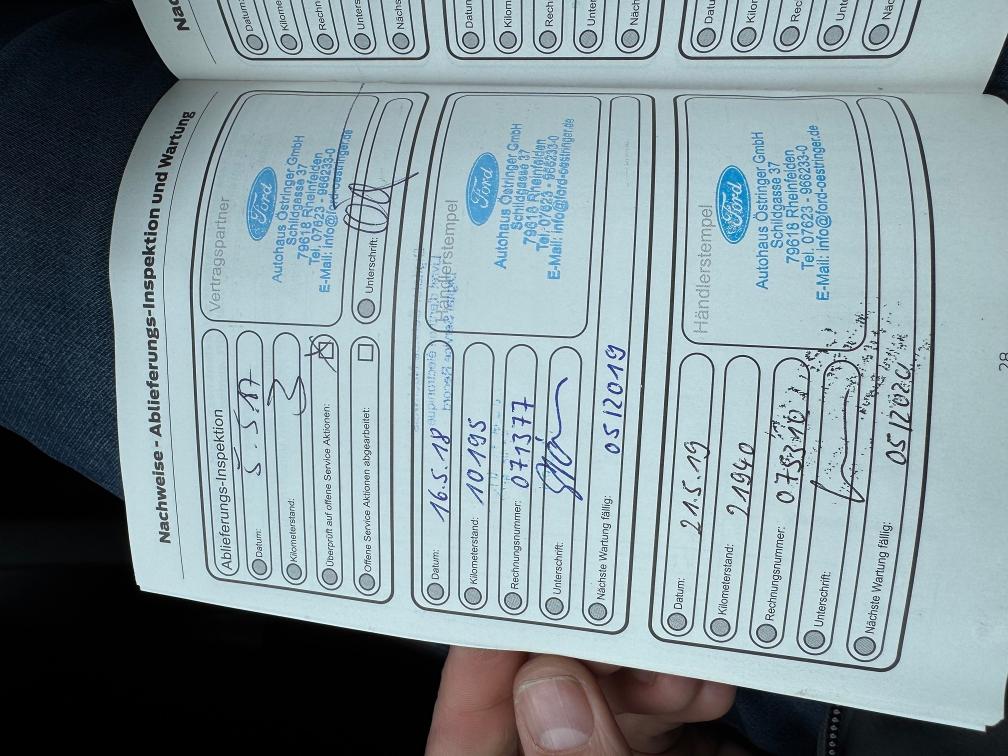 Nachweise - Ablieferungs-Inspektion und Wartung
Ablieferungs-Inspektion
Datum: 5.5.17
Kilometerstand: 3
Überprüft auf offene Service Aktionen:
Offene Service Aktionen abgearbeitet:
Vertragspartner
Ford
Autohaus Östringer GmbH
Schildgasse 37
79618 Rheinfelden
Tel. 07623 - 966233-0
E-Mail: info@ford-oestringer.de
Unterschrift:
Datum: 16.5.18
Kilometerstand: 10195
Rechnungsnummer: 071377
Unterschrift:
Nächste Wartung fällig: 05/2019
Händlerstempel
Ford
Autohaus Östringer GmbH
Schildgasse 37
79618 Rheinfelden
Tel. 07623 - 966233-0
E-Mail: info@ford-oestringer.de
Datum: 21.5.19
Kilometerstand: 21940
Rechnungsnummer: 075310
Unterschrift:
Nächste Wartung fällig: 05/2020
Händlerstempel
Ford
Autohaus Östringer GmbH
Schildgasse 37
79618 Rheinfelden
Tel. 07623 - 966233-0
E-Mail: info@ford-oestringer.de
28